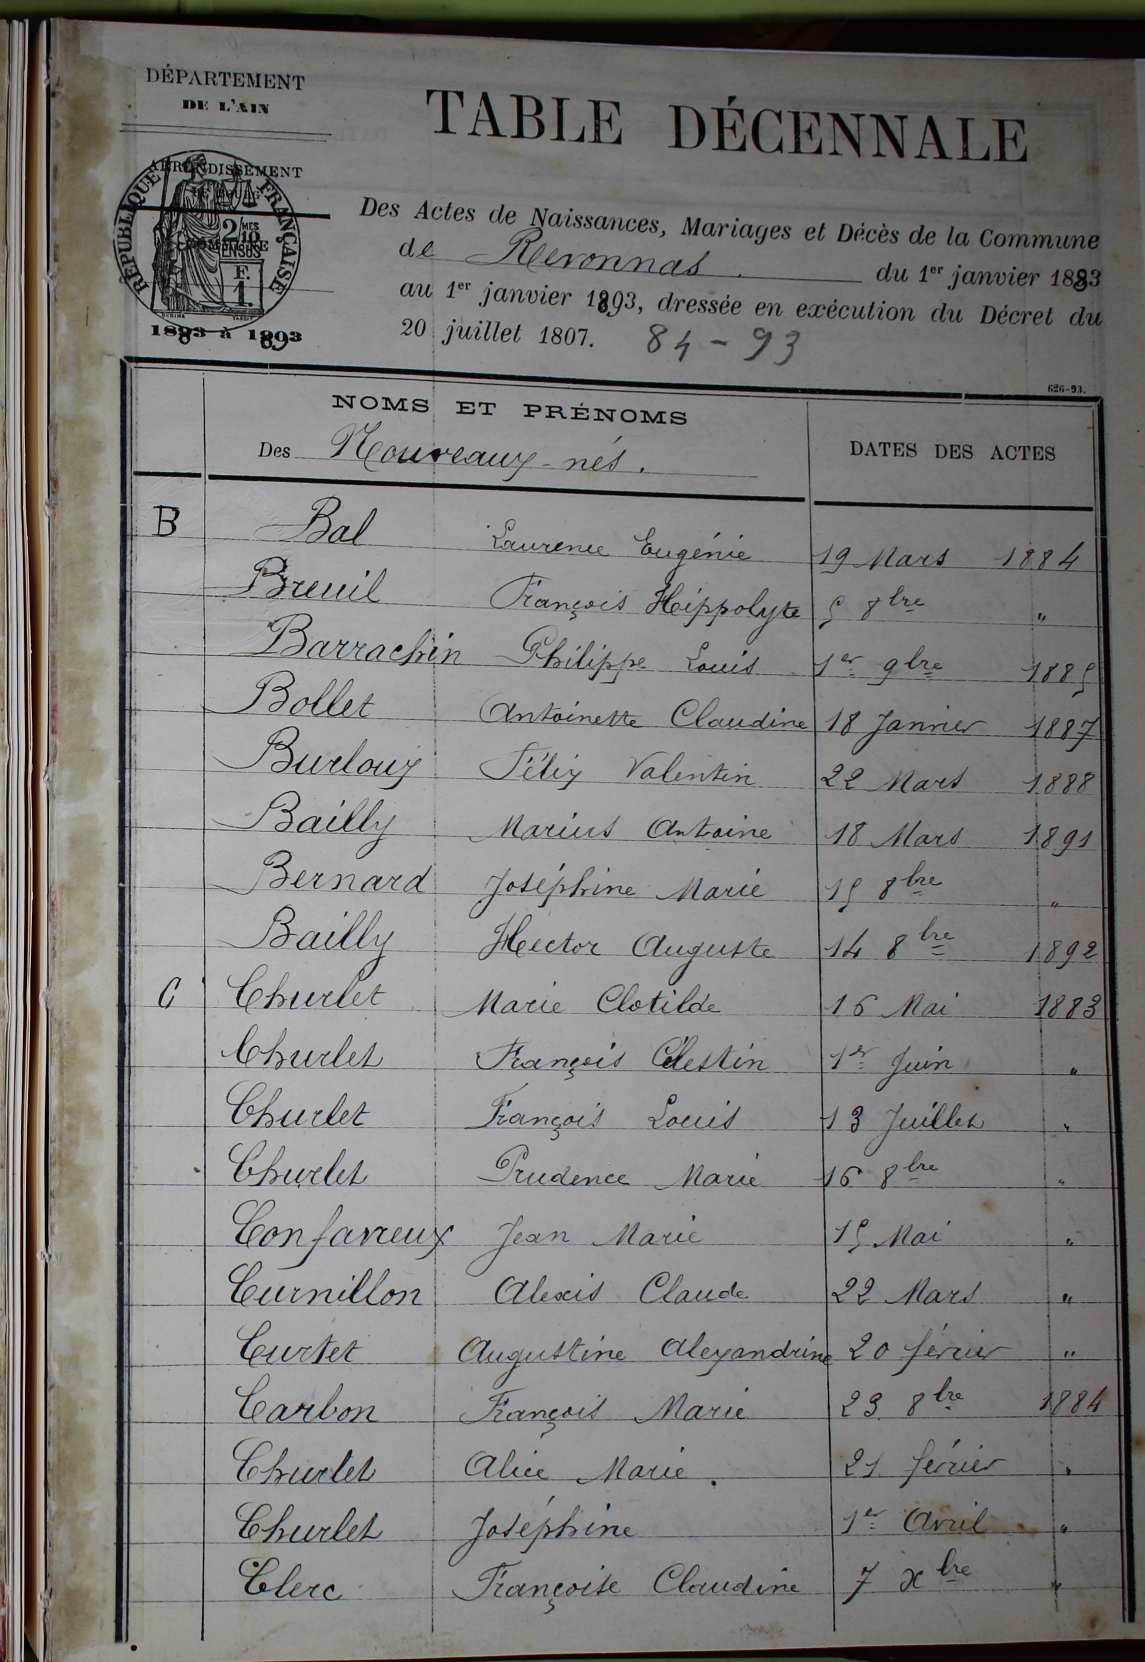 DÉPARTEMENT
DE L'AIN
TABLE DÉCENNALE
ARRONDISSEMENT
RÉPUBLIQUE FRANÇAISE
2/10 MES
EN SUS
F.
1.
1883 à 1893
Des Actes de Naissances, Mariages et Décès de la Commune
de Revonnas. du 1er janvier 1883
au 1er janvier 1893, dressée en exécution du Décret du
20 juillet 1807. 84-93
626-93.
NOMS ET PRÉNOMS
Des Nouveaux-nés.
DATES DES ACTES
B Bal Laurence Eugénie 19 Mars 1884
Breuil François Hippolyte 5 8bre "
Barrachin Philippe Louis 1er 9bre 1885
Bollet Antoinette Claudine 18 Janvier 1887
Burloux Félix Valentin 22 Mars 1888
Bailly Marius Antoine 18 Mars 1891
Bernard Joséphine Marie 15 8bre "
Bailly Hector Auguste 14 8bre 1892
C Churlet Marie Clotilde 16 Mai 1883
Churlet François Célestin 1er Juin "
Churlet François Louis 13 Juillet "
Churlet Prudence Marie 16 8bre "
Confavreux Jean Marie 15 Mai "
Curnillon Alexis Claude 22 Mars "
Curtet Augustine Alexandrine 20 février "
Carbon François Marie 23 8bre 1884
Churlet Alice Marie. 21 février "
Churlet Joséphine 1er Avril "
Clerc Françoise Claudine 7 xbre "